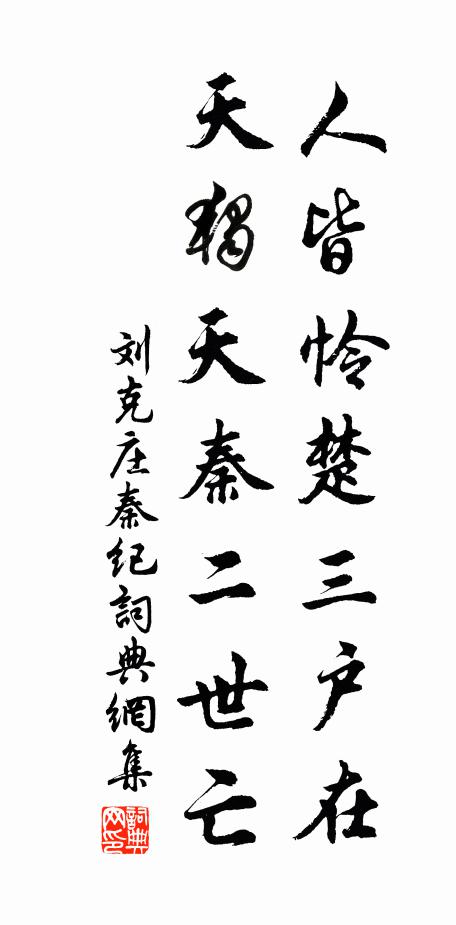 人皆怜楚三户在
天独天秦二世亡
刘克庄秦纪詞典網集
詞典網印